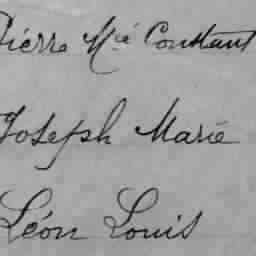 Pierre Mie Constant
Joseph Marie
Léon Louis